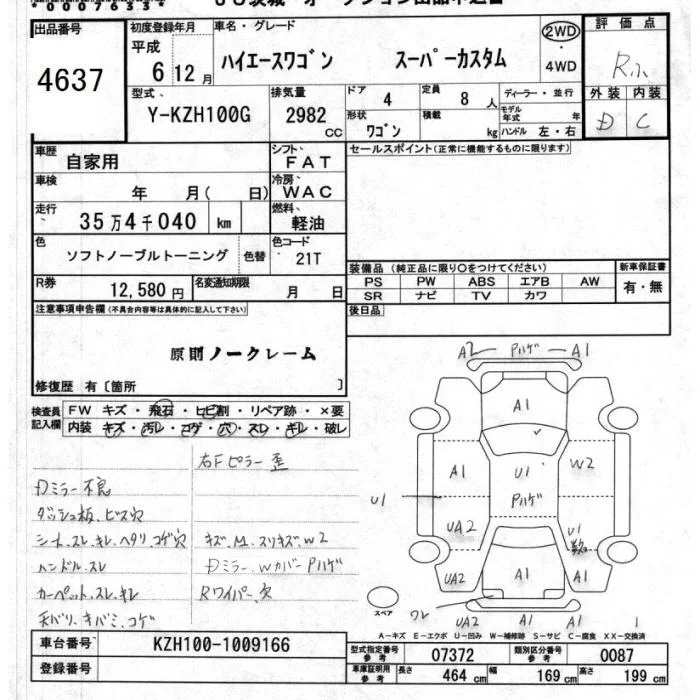 出品番号
4637
初度登録年月
平成
6 12 月
車名・グレード
ハイエースワゴン スーパーカスタム
2WD
・
4WD
評価点
Rふ
外装 内装
D C
型式、
Y-KZH100G
排気量
2982 CC
ドア 4
定員 8 人
ディーラー・並行
モデル年式 年
形状 ワゴン
積載 kg
ハンドル 左・右
車歴 自家用
シフト、 FAT
セールスポイント(正常に機能するものに限ります)
車検 年 月( 日)
冷房、 WAC
走行、 35万4千040 km
燃料、 軽油
色 ソフトノーブルトーニング 色替
色コード 21T
R券 12,580円
名変通知期限 月 日
装備品 (純正品に限り〇をつけてください)
新車保証書
PS PW ABS エアB AW
有・無
SR ナビ TV カワ
後日品
注意事項申告欄(不具合内容等は具体的に記入して下さい)
原則ノークレーム
修復歴 有〔箇所 〕
検査員記入欄
FW キズ・飛石・ヒビ割・リペア跡・×要
内装 キズ・汚レ・コゲ・穴・スレ・キレ・破レ
右Fピラー歪
Dミラー不良
ダッシュ板、ビス穴
シート、スレ、キレ、ヘタリ、コゲ穴 キズ、M、スリキズ、W2
ハンドル、スレ Dミラー、Wカバー Pハゲ
カーペット、スレ、キレ Rワイパー、欠
天バリ、キバミ、コゲ
A2 Pハゲ A1
A1
A1 U1 W2
U1 Pハゲ
UA2 U1
UA2 A1 A1
ワレ
UA2 A1 A1
スペア
A-キズ E-エクボ U-凹み W-補修跡 S-サビ C-腐食 XX-交換済
車台番号 KZH100-1009166
登録番号
型式指定番号 参考 07372
類別区分番号 参考 0087
車庫証明用 参考 長さ 464 cm 幅 169 cm 高さ 199 cm